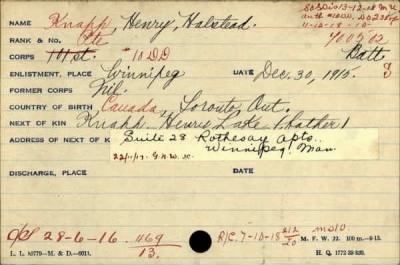 SOS Div 13-12-18
NAME Knapp, Henry, Halstead.
11-12-18
RANK & NO. Pte 460502
CORPS 101st. 10 DD Batt
ENLISTMENT, PLACE Winnipeg DATE Dec. 30, 1915.
FORMER CORPS Nil.
COUNTRY OF BIRTH Canada, Toronto, Ont.
NEXT OF KIN Knapp Henry Lake (father)
ADDRESS OF NEXT OF KIN Suite 28 Rothesay Apts.
Winnipeg. Man.
DISCHARGE, PLACE DATE
28-6-16 469/13. R/C. 7-10-18 212/20 M. F. W. 22. 100 m.-9-15.
L. L. H. Q. 1772-39-839.